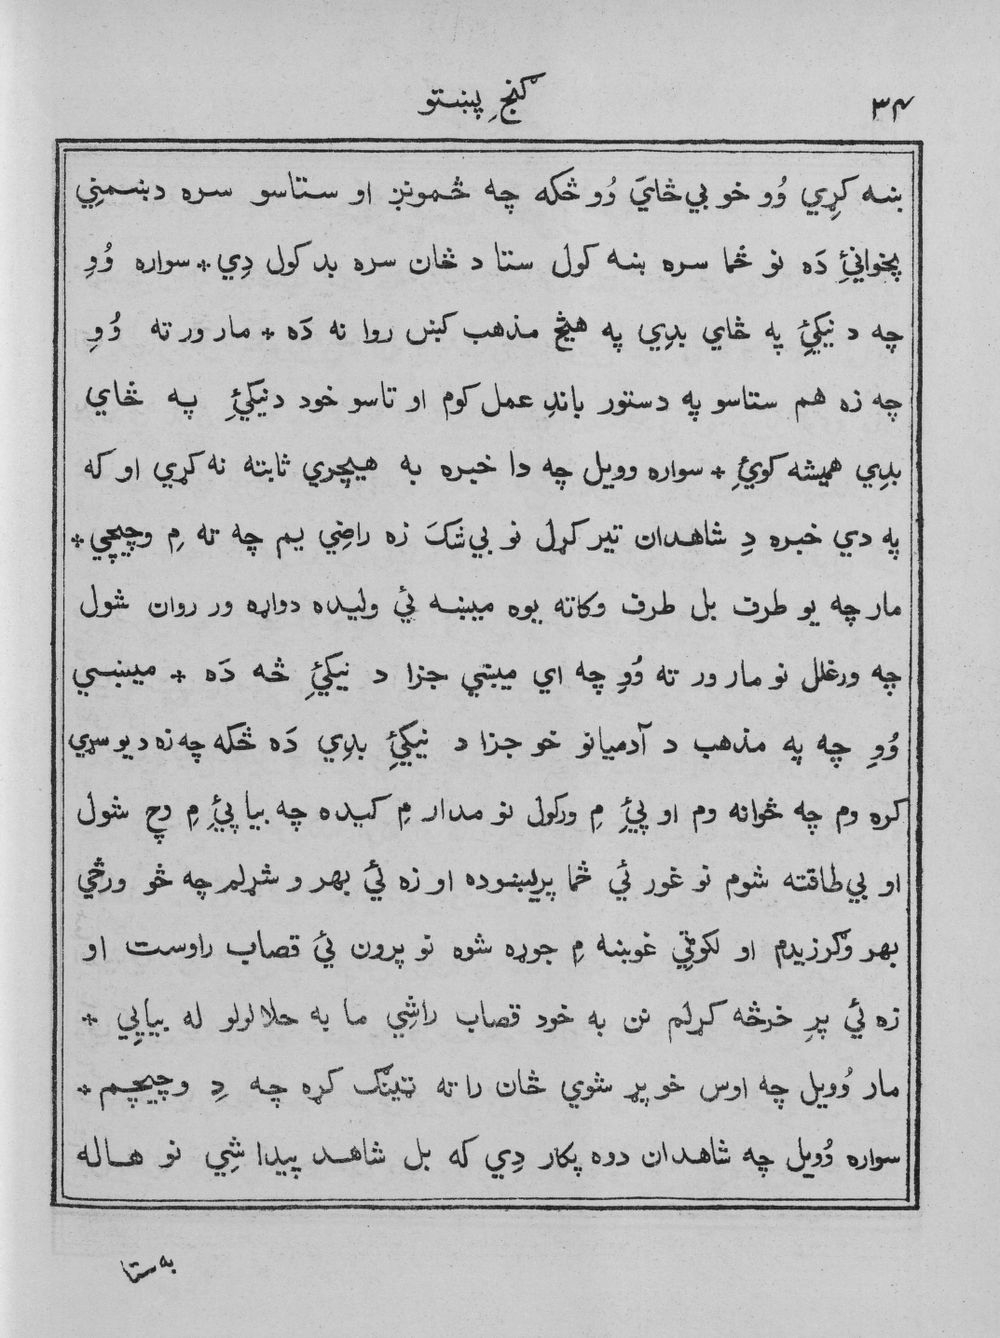 ۳۴
گنج پښتو
ښه کړي وُو خو بي ځايَ وُو ځکه چه څمونږ او ستاسو سره دښمني
پخواني دَه نو ځما سره ښه کول ستا د ځان سره بد کول دِي * سواره وُوِ
چه د نيکئِ په ځاي بدي په هيڅ مذهب کښ روا نه دَه * مار ور ته وُوِ
چه زه هم ستاسو په دستور باندِ عمل کوم او تاسو خود د نيکئِ په ځاي
بدِي هميشه کوئِ * سواره وويل چه دا خبره به هيچري ثابته نه کړي او که
په دي خبره دِ شاهدان تير کړل نو بي شکَ زه راضِي يم چه ته مِ وچيچي *
مار چه يو طرف بل طرف وکاته يوه ميښه ئي وليده دواړه ور روان شول
چه ورغلل نو مار ور ته وُوِ چه اي ميښي جزا د نيکئِ څه دَه * ميښي
وُوِ چه په مذهب د آدميانو خو جزا د نيکئِ بدِي دَه ځکه چه زه د يو سړي
کره وم چه ځوانه وم او پئِ مِ ورکول نو مدار مِ کيده چه بيا پئِ مِ وچ شول
او بي طاقته شوم نو غور ئي ځما پريښوده او زه ئي بهر و شړلم چه څو ورځي
بهر وګرزيدم او لکوټِي غوښه مِ جوړه شوه نو پرون ئي قصاب راوست او
زه ئي پرِ خرڅه کړلم نن به خود قصاب راشِي ما به حلالولو له بيايِي *
مار وُويل چه اوس خو پړ شوي ځان را ته ټينګ کړه چه دِ وچيچم *
سواره وُويل چه شاهدان دوه پکار دِي که بل شاهد پيدا شِي نو هاله
به ستا